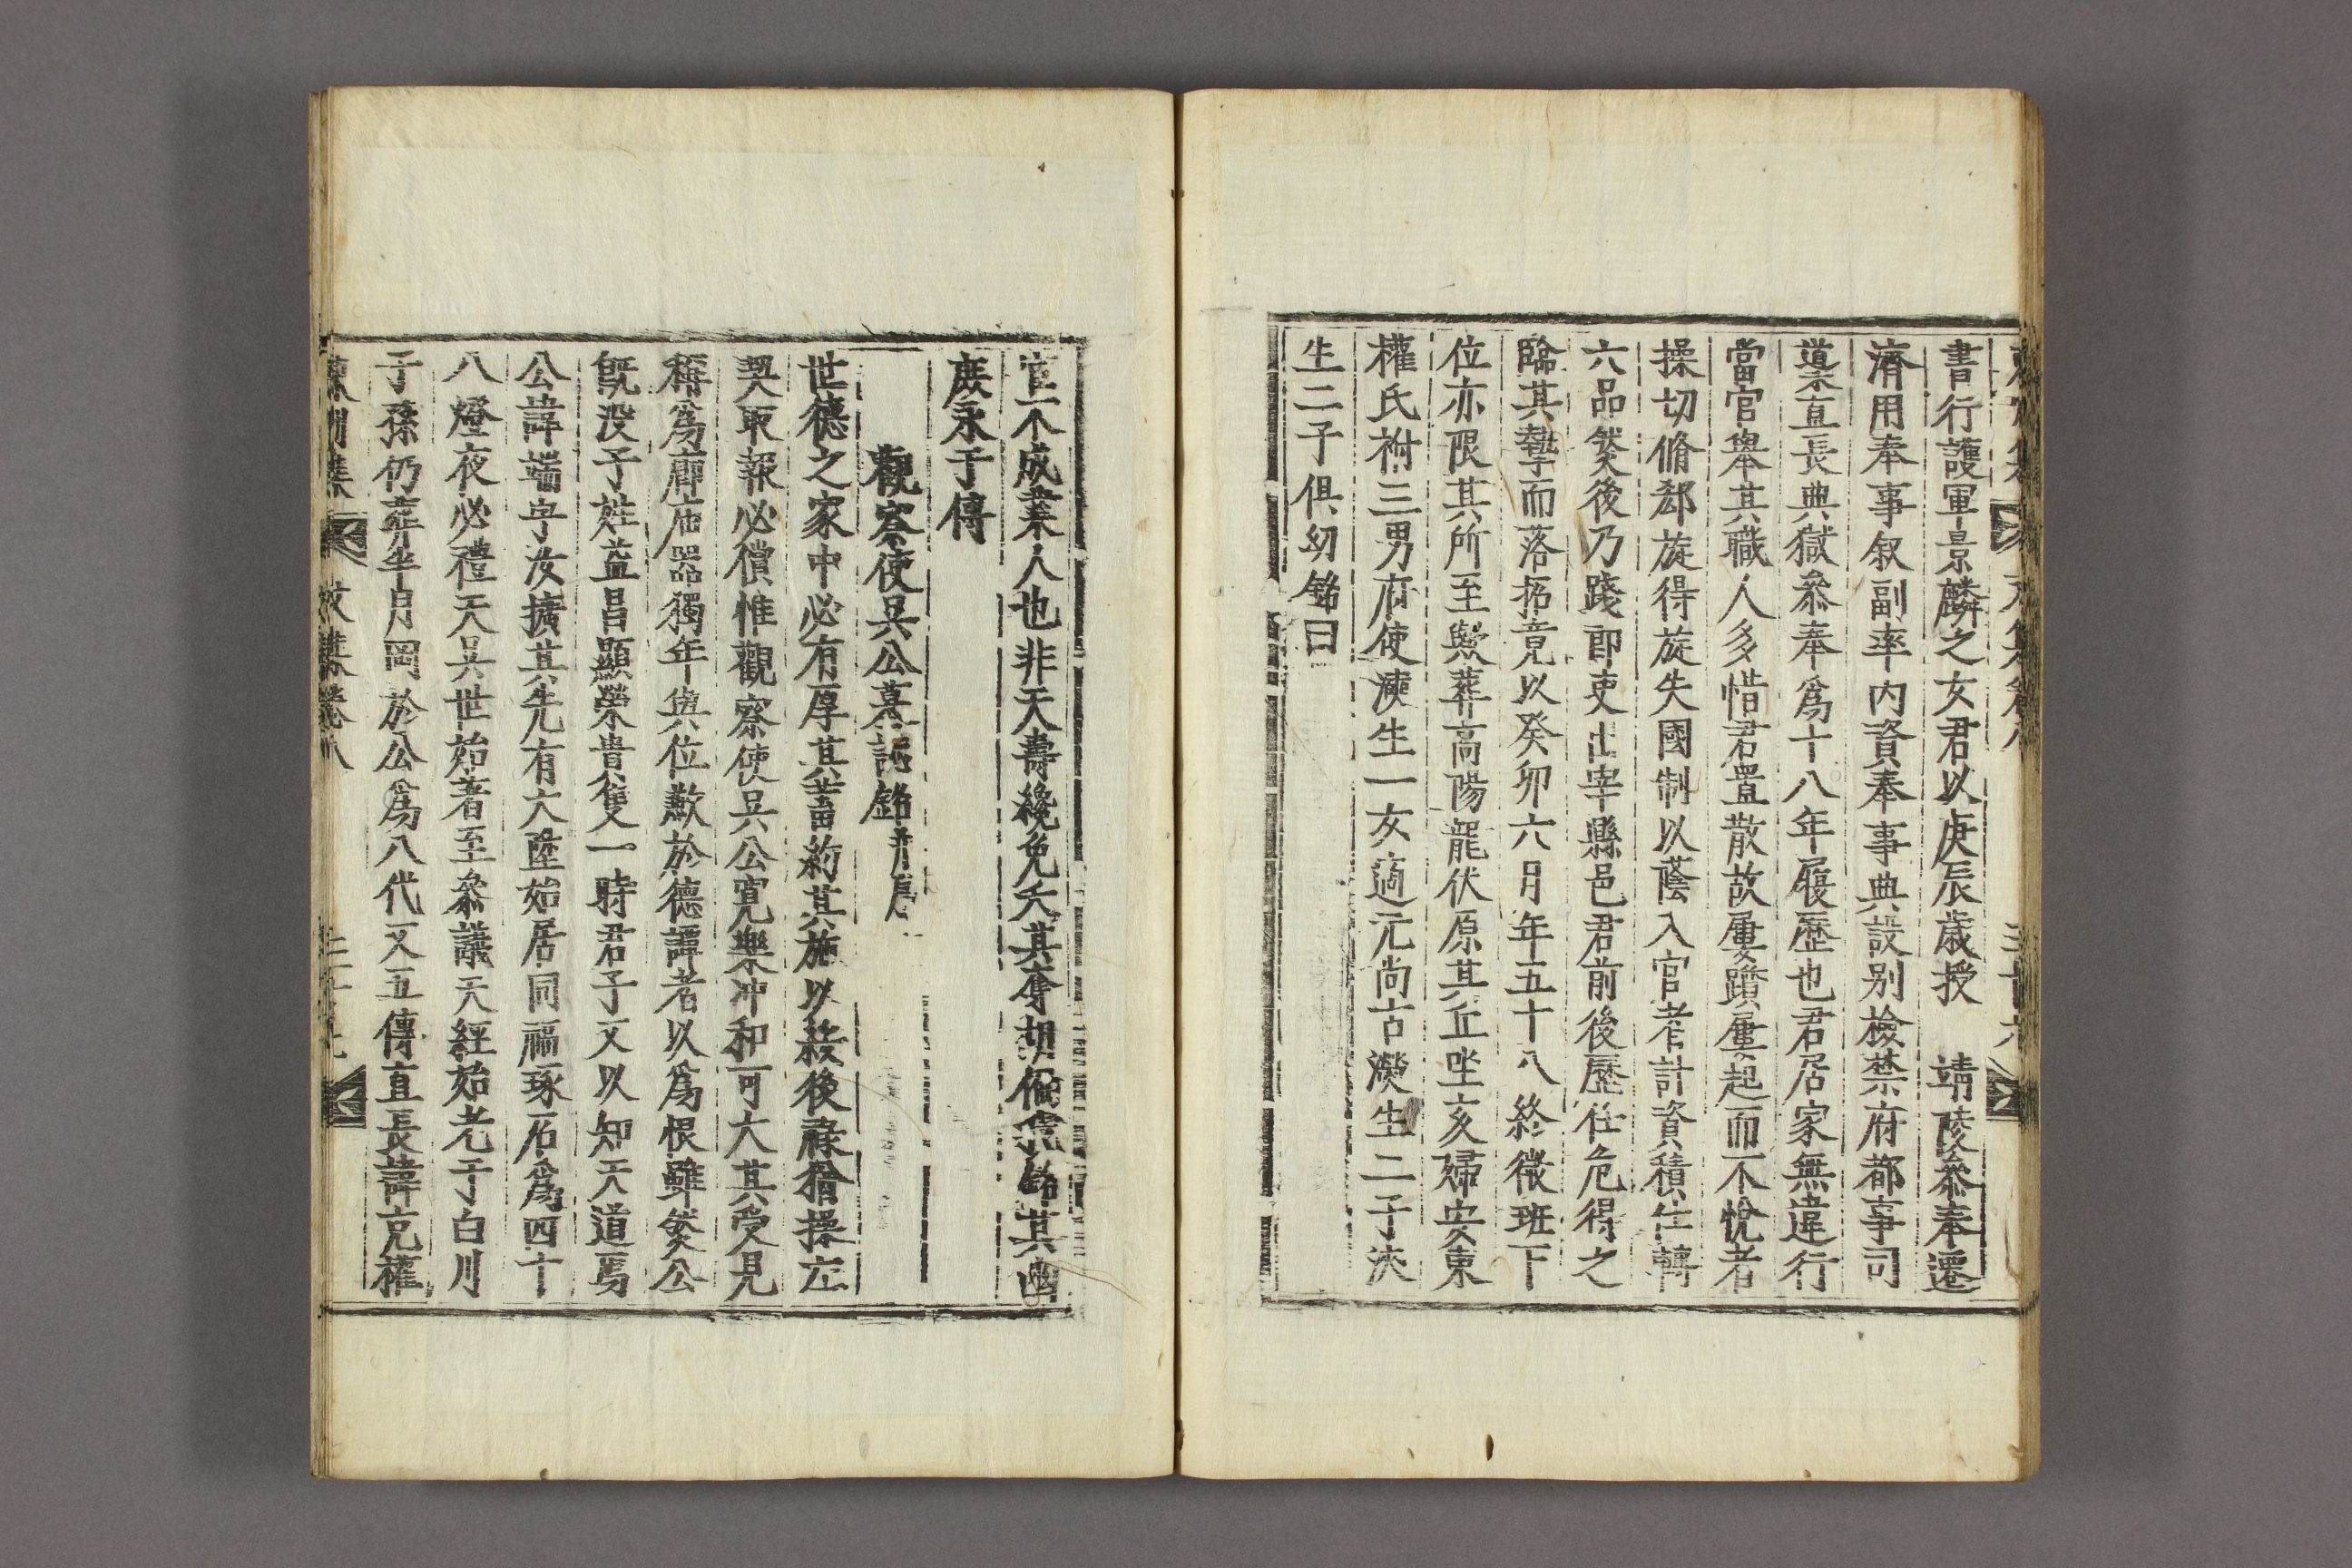 書行護軍景麟之女君以庚辰歲授　靖陵叅奉遷
濟用奉事叙副率內資奉事典設別檢禁府都事司
䆃直長典獄叅奉爲十八年履歷也君居家無違行
當官舉其職人多惜君置散故屢躓屢起而不悅者
操切脩郄旋得旋失國制以蔭入官者計資積仕轉
六品然後乃踐郎吏出宰縣邑君前後歷仕危得之
臨其摯而落拓竟以癸卯六月年五十八終微班下
位亦限其所至歟葬高陽龍伏原其丘坐亥婦安東
權氏祔三男府使㴒生一女適元尚古濙生二子浹
生二子俱幼銘曰
官不成業人也非天壽纔免夭其奪胡偏焄銘其幽
庶永于傳
觀察使吳公墓誌銘并序
世德之家中必有厚其蓄約其施以裕後祿猶操左
契取報必償惟觀察使吳公寬樂冲和可大其受見
稱爲廊庙器獨年與位歉於德譚者以爲恨雖然公
旣没子姓益昌顯榮貴隻一時君子又以知天道焉
公諱端字汝擴其先有大陞始居同福琢石爲四十
八燈夜必禮天吳世始著至叅議天經始老于白川
子孫仍葬半月岡於公爲八代又五傳直長諱克權